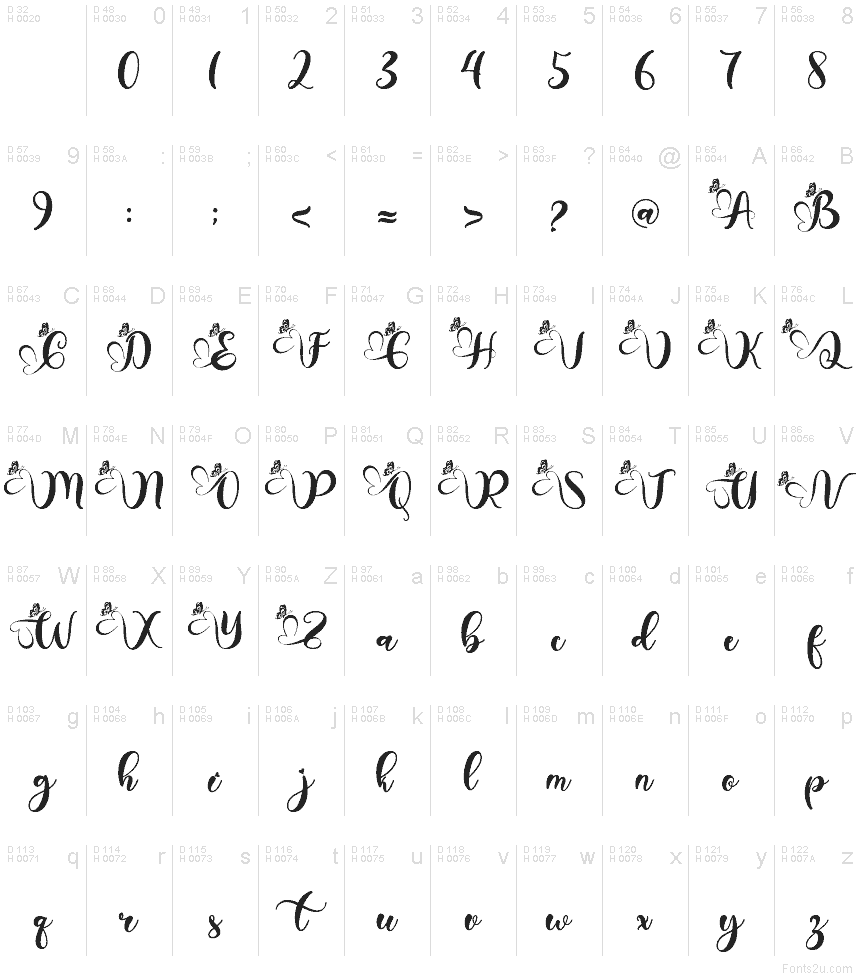 D 32 H 0020 D 48 H 0030 0 D 49 H 0031 1 D 50 H 0032 2 D 51 H 0033 3 D 52 H 0034 4 D 53 H 0035 5 D 54 H 0036 6 D 55 H 0037 7 D 56 H 0038 8
0 1 2 3 4 5 6 7 8
D 57 H 0039 9 D 58 H 003A : D 59 H 003B ; D 60 H 003C < D 61 H 003D = D 62 H 003E > D 63 H 003F ? D 64 H 0040 @ D 65 H 0041 A D 66 H 0042 B
9 : ; < ≈ > ? @ A B
D 67 H 0043 C D 68 H 0044 D D 69 H 0045 E D 70 H 0046 F D 71 H 0047 G D 72 H 0048 H D 73 H 0049 I D 74 H 004A J D 75 H 004B K D 76 H 004C L
C D E F G H I J K L
D 77 H 004D M D 78 H 004E N D 79 H 004F O D 80 H 0050 P D 81 H 0051 Q D 82 H 0052 R D 83 H 0053 S D 84 H 0054 T D 85 H 0055 U D 86 H 0056 V
M N O P Q R S T U V
D 87 H 0057 W D 88 H 0058 X D 89 H 0059 Y D 90 H 005A Z D 97 H 0061 a D 98 H 0062 b D 99 H 0063 c D 100 H 0064 d D 101 H 0065 e D 102 H 0066 f
W X Y Z a b c d e f
D 103 H 0067 g D 104 H 0068 h D 105 H 0069 i D 106 H 006A j D 107 H 006B k D 108 H 006C l D 109 H 006D m D 110 H 006E n D 111 H 006F o D 112 H 0070 p
g h i j k l m n o p
D 113 H 0071 q D 114 H 0072 r D 115 H 0073 s D 116 H 0074 t D 117 H 0075 u D 118 H 0076 v D 119 H 0077 w D 120 H 0078 x D 121 H 0079 y D 122 H 007A z
q r s t u v w x y z
Fonts2u.com